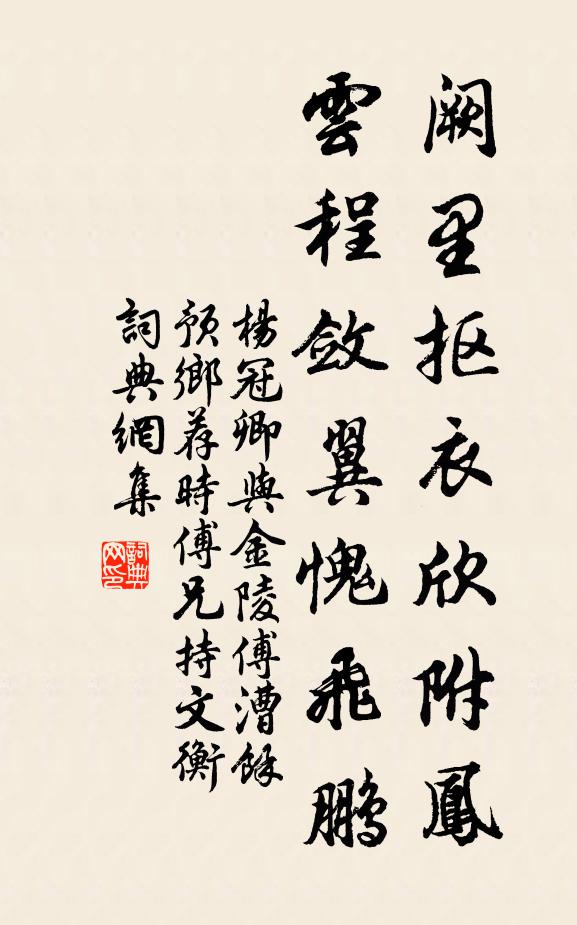 阙里抠衣欣附鳳
雲程斂翼愧飛鵬
楊冠卿與金陵傅漕餘
預鄉荐時傅兄持文衡
詞典網集
詞典网印